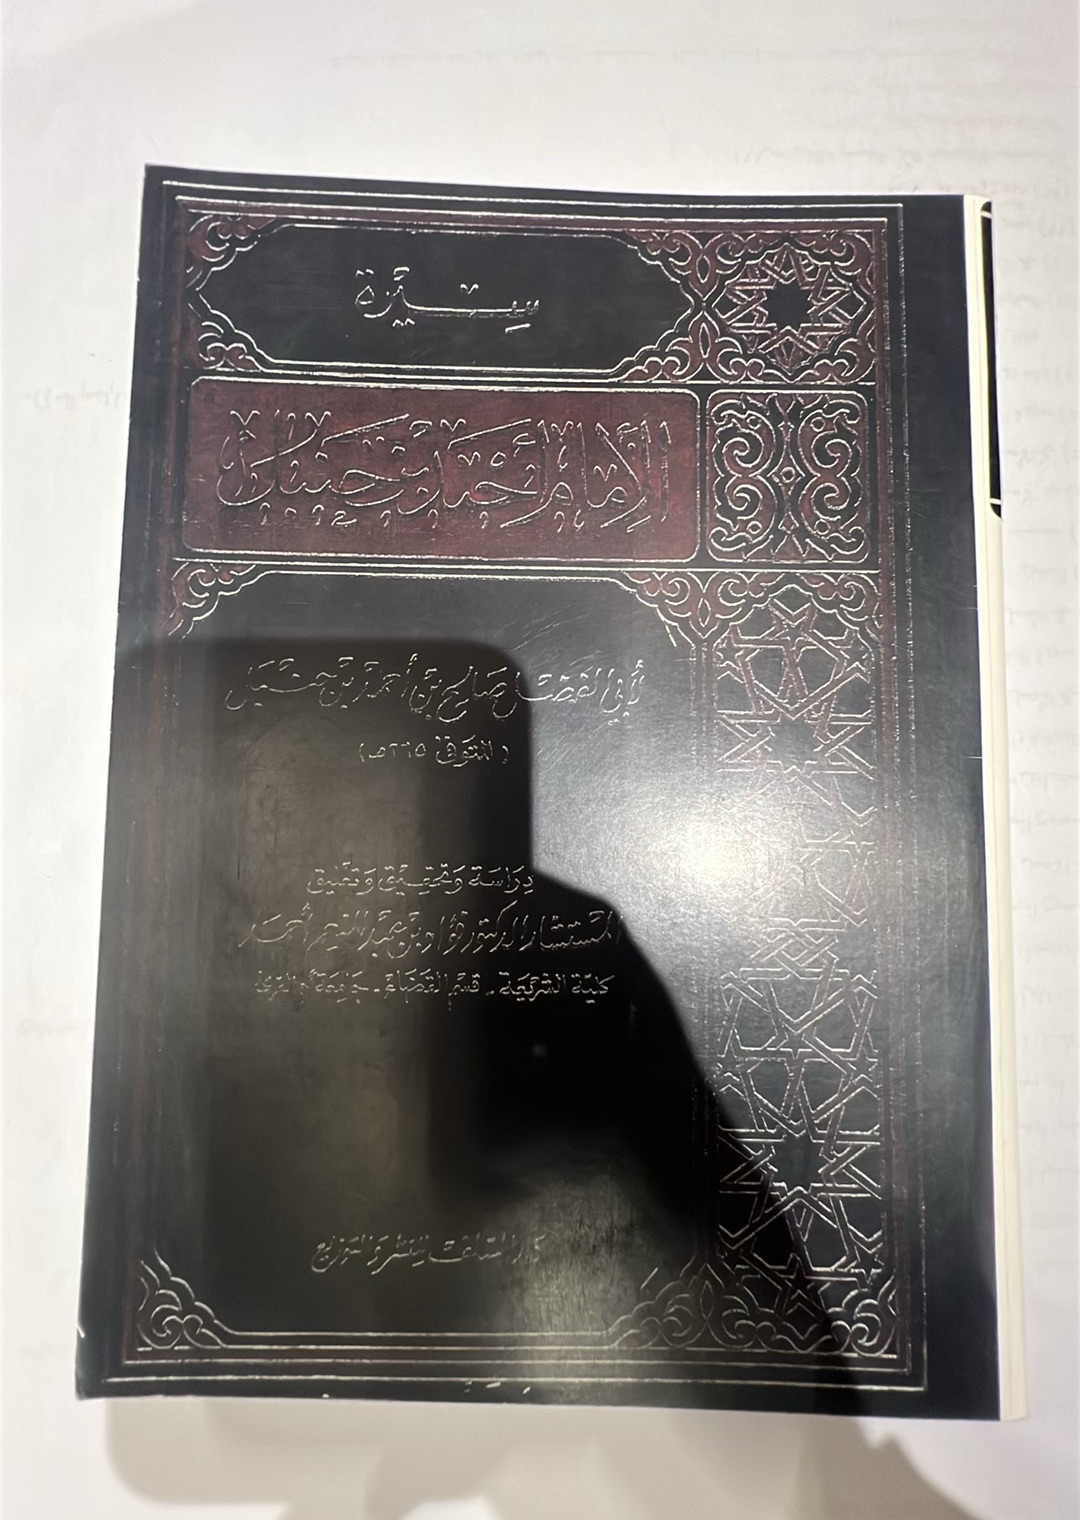 سِيْرَة
الإمَام أحْمَد بْن حَنبَل
لأبي الفَضْل صَالح بْن أحمَد بْن حَنْبَل
(المتَوَفى ٢٦٥هـ)
دِرَاسَة وَتحقِيق وَتعْليق
المسْتشار الدكتور فؤاد بْن عَبد المنعِم أحمَد
كليّة الشرْعِيعَة - قسْم القَضَاء - جَامِعَة أم القرىٰ
دَار السَّلف للنشر وَالتوزيع